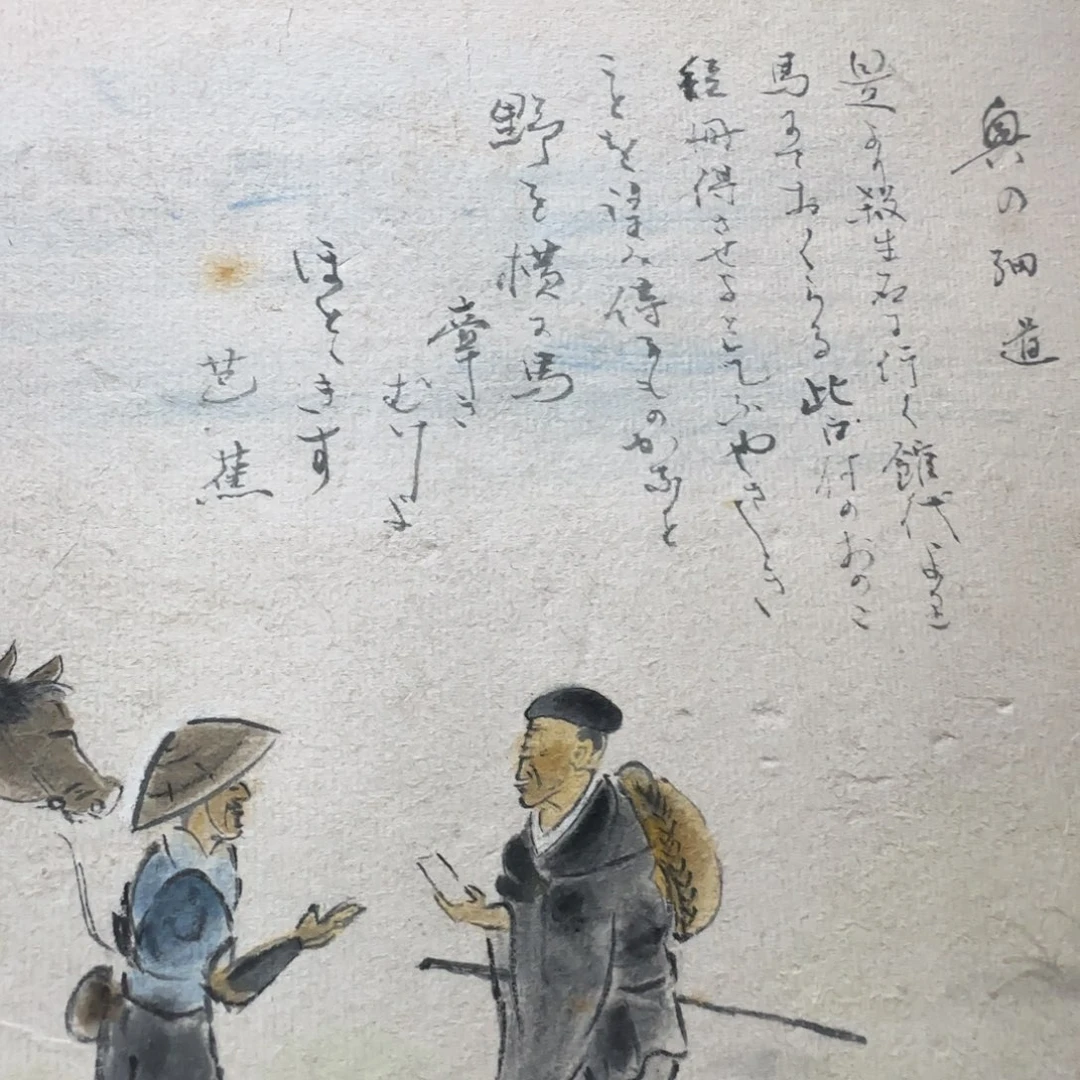 奥の細道
是より殺生石に行く館代より
馬にておくらる此口付のおのこ
短冊得させよとこふやさしき
ことを望み侍るものかなと
野を横に馬
牽き
むけよ
ほとゝきす
芭蕉